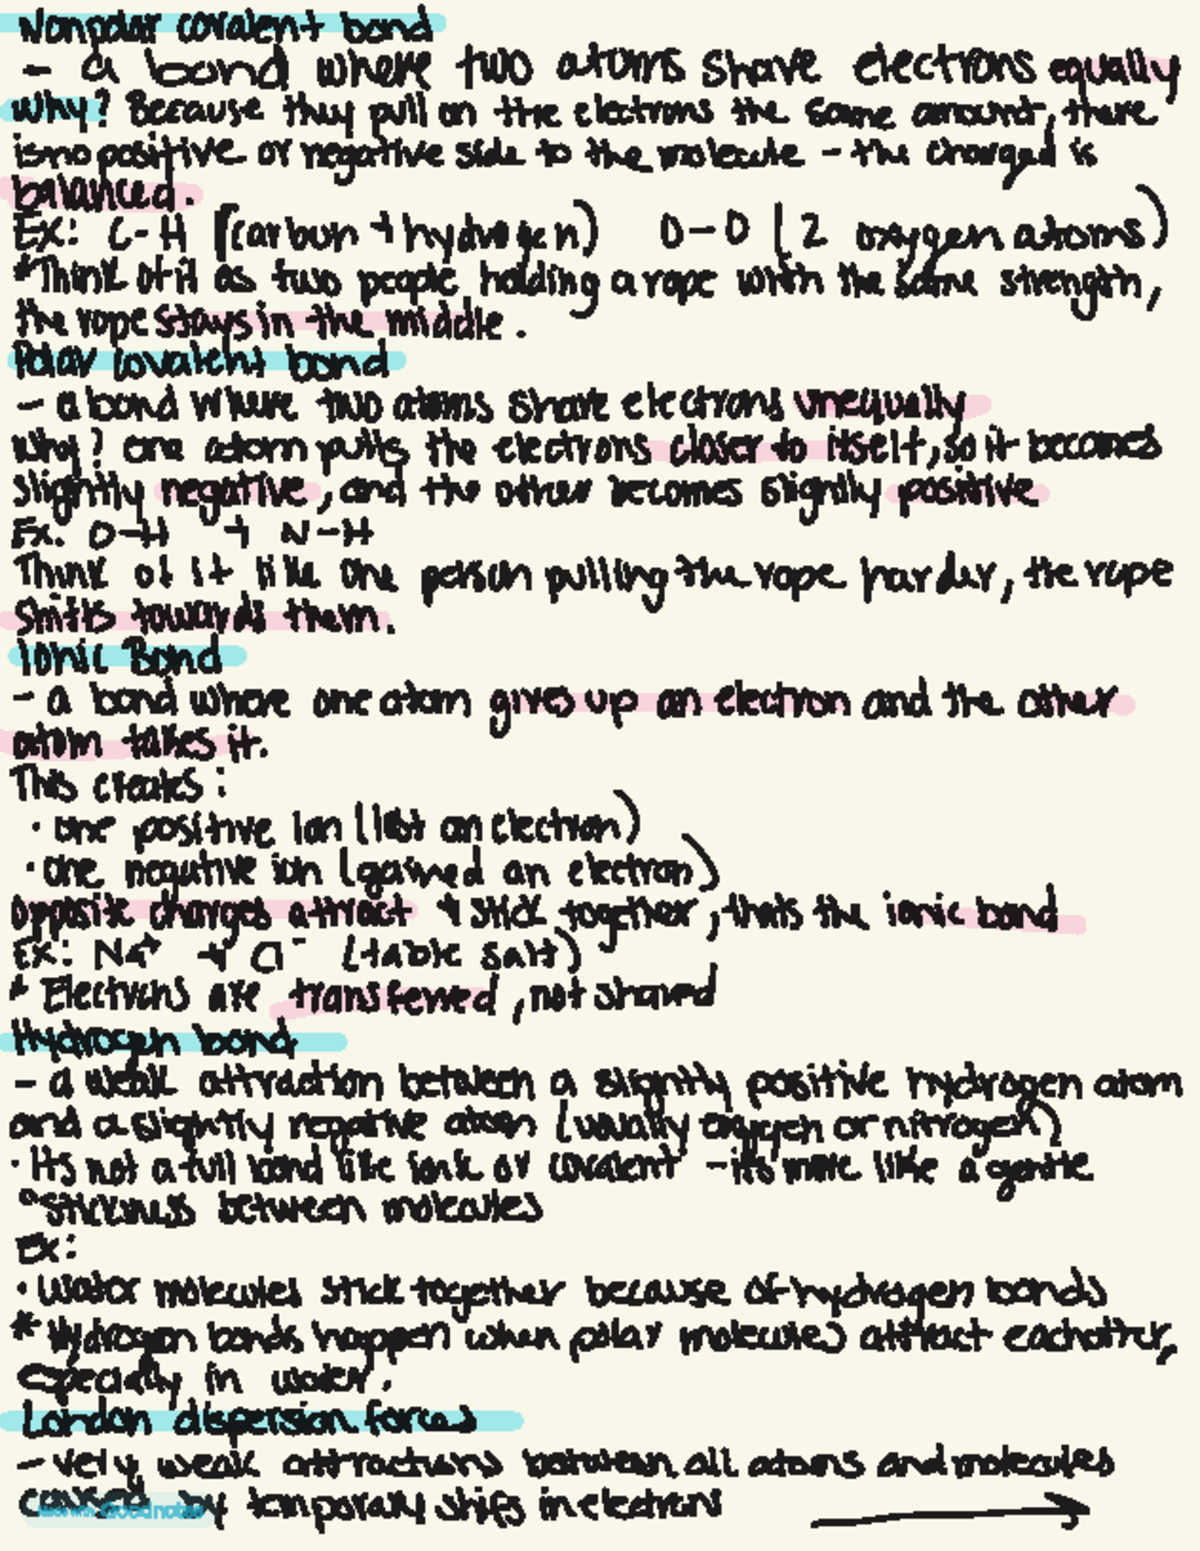 Nonpolar covalent bond
- a bond where two atoms share electrons equally
Why? Because they pull on the electrons the same amount, there
is no positive or negative side to the molecule - the charged is
balanced.
Ex: C-H (carbon + hydrogen) O-O (2 oxygen atoms)
*Think of it as two people holding a rope with the same strength,
the rope stays in the middle.
Polar covalent bond
- a bond where two atoms share electrons unequally
Why? one atom pulls the electrons closer to itself, so it becomes
slightly negative, and the other becomes slightly positive
Ex: O-H + N-H
Think of it like one person pulling the rope harder, the rope
shifts towards them.
Ionic Bond
- a bond where one atom gives up an electron and the other
atom takes it.
This creates:
· one positive ion (lost an electron)
· one negative ion (gained an electron)
opposite charges attract + stick together, thats the ionic bond
Ex: Na+ + Cl- (table salt)
* Electrons are transferred, not shared
Hydrogen bond
- a weak attraction between a slightly positive hydrogen atom
and a slightly negative atom (usually oxygen or nitrogen)
· It's not a full bond like ionic or covalent - it's more like a gentle
"stickiness between molecules
Ex:
· Water molecules stick together because of hydrogen bonds
* Hydrogen bonds happen when polar molecules attract eachother,
especially in water.
London dispersion forces
- very weak attractions between all atoms and molecules
caused by temporary shifts in electrons
Made with Goodnotes